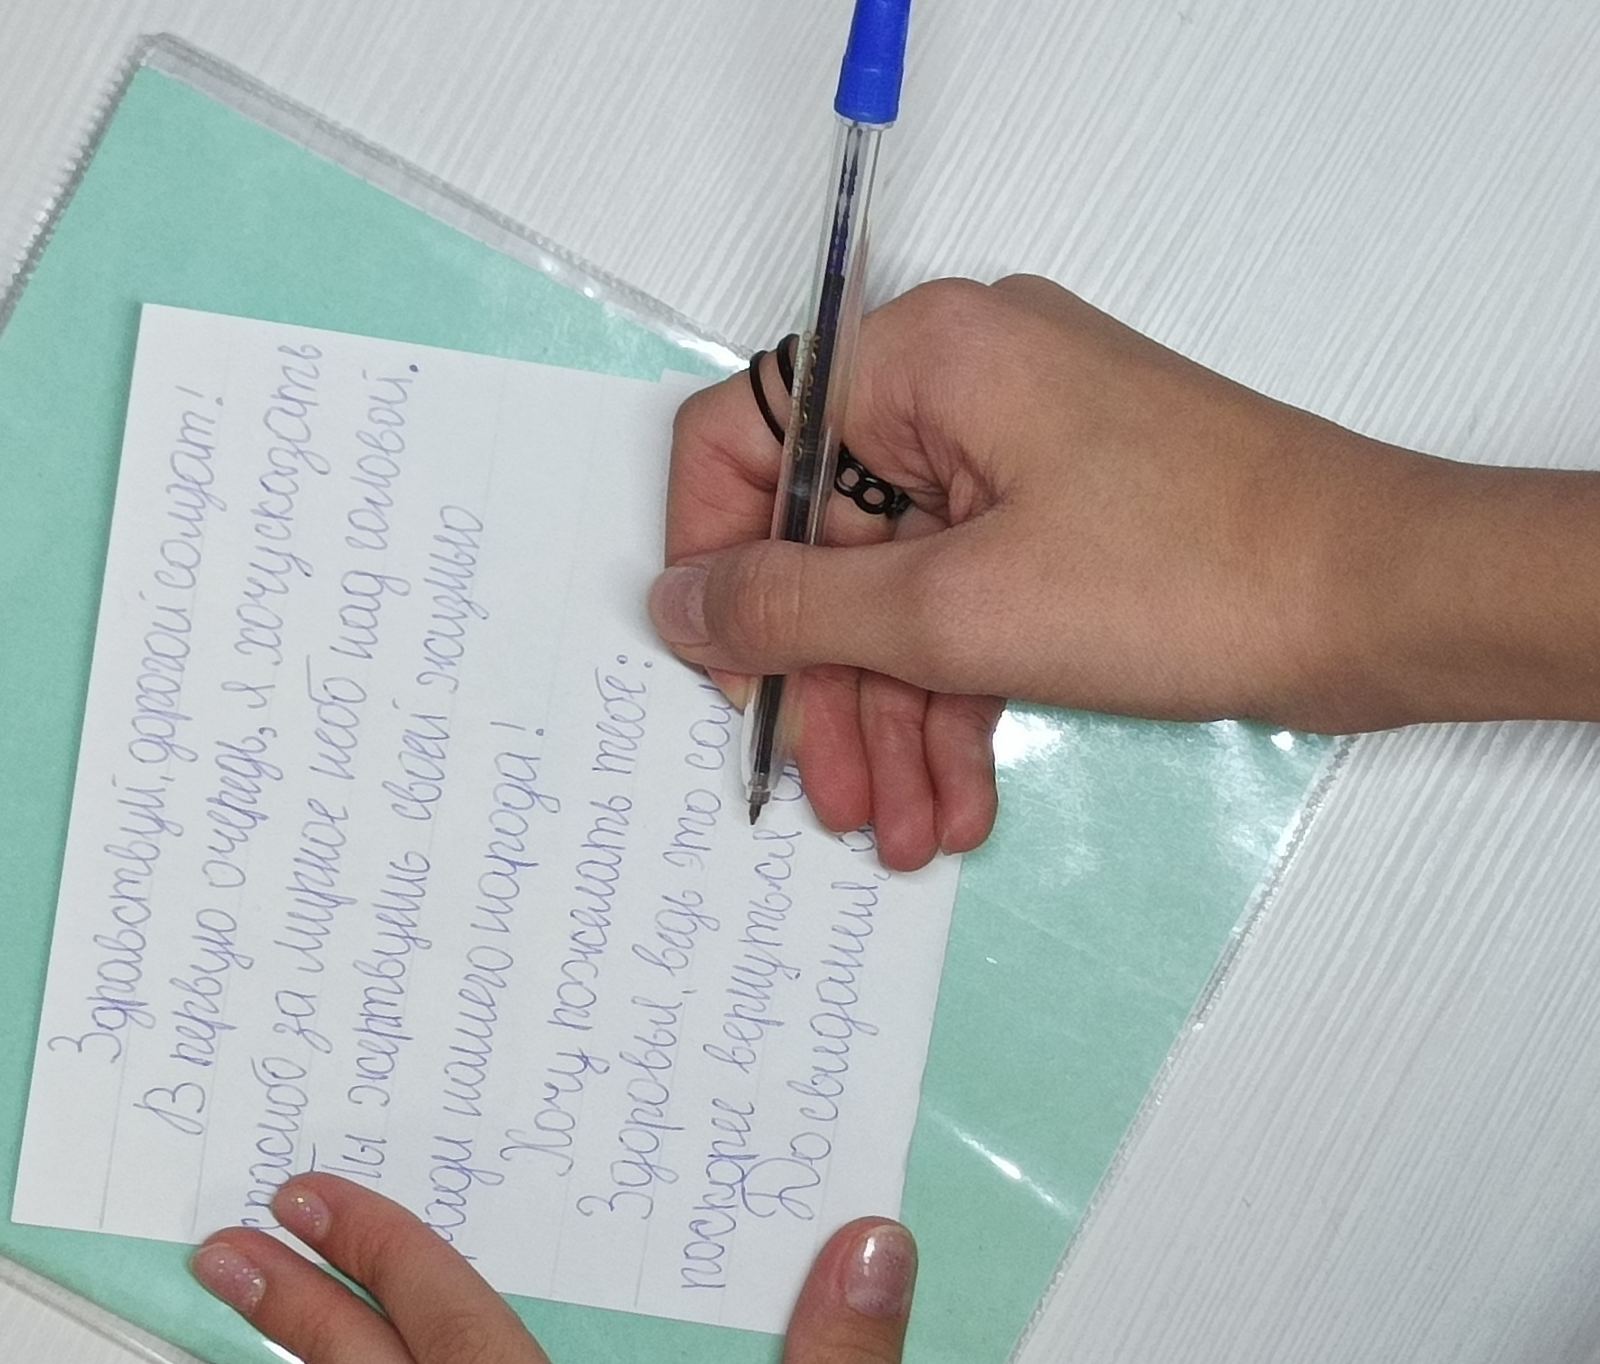 Здравствуй, дорогой солдат!
В первую очередь, я хочу сказать
спасибо за мирное небо над головой.
Ты жертвуешь своей жизнью
ради нашего народа!
Хочу пожелать тебе:
Здоровья, ведь это
поскорее вернуться
До свидания,